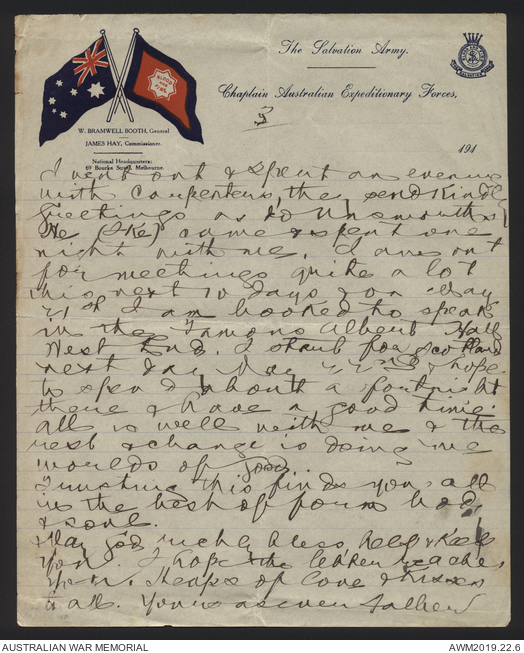 BLOOD AND FIRE
W. BRAMWELL BOOTH, General
JAMES HAY, Commissioner.
National Headquarters:
69 Bourke Street, Melbourne.
The Salvation Army.
Chaplain Australian Expeditionary Forces,
3
191
I went out & spent an evening
with Carpenters, they send kindly
greetings as do Unsworths
He (Ike) came & spent one
night with me. I am out
for meetings quite a lot
this next 10 days & on May
21st I am booked to speak
in the Famous Albert Hall
West End. I start for Scotland
next day May 22nd & hope
to spend about a fortnight
there & have a good time.
All is well with me & the
rest & change is doing me
worlds of good.
Trusting this finds you all
in the best of form body
& soul.
May God richly bless help & keep
you. I hope the letter reaches
you. Heaps of love & kisses
to all. Yours as ever Father
AUSTRALIAN WAR MEMORIAL
AWM2019.22.6